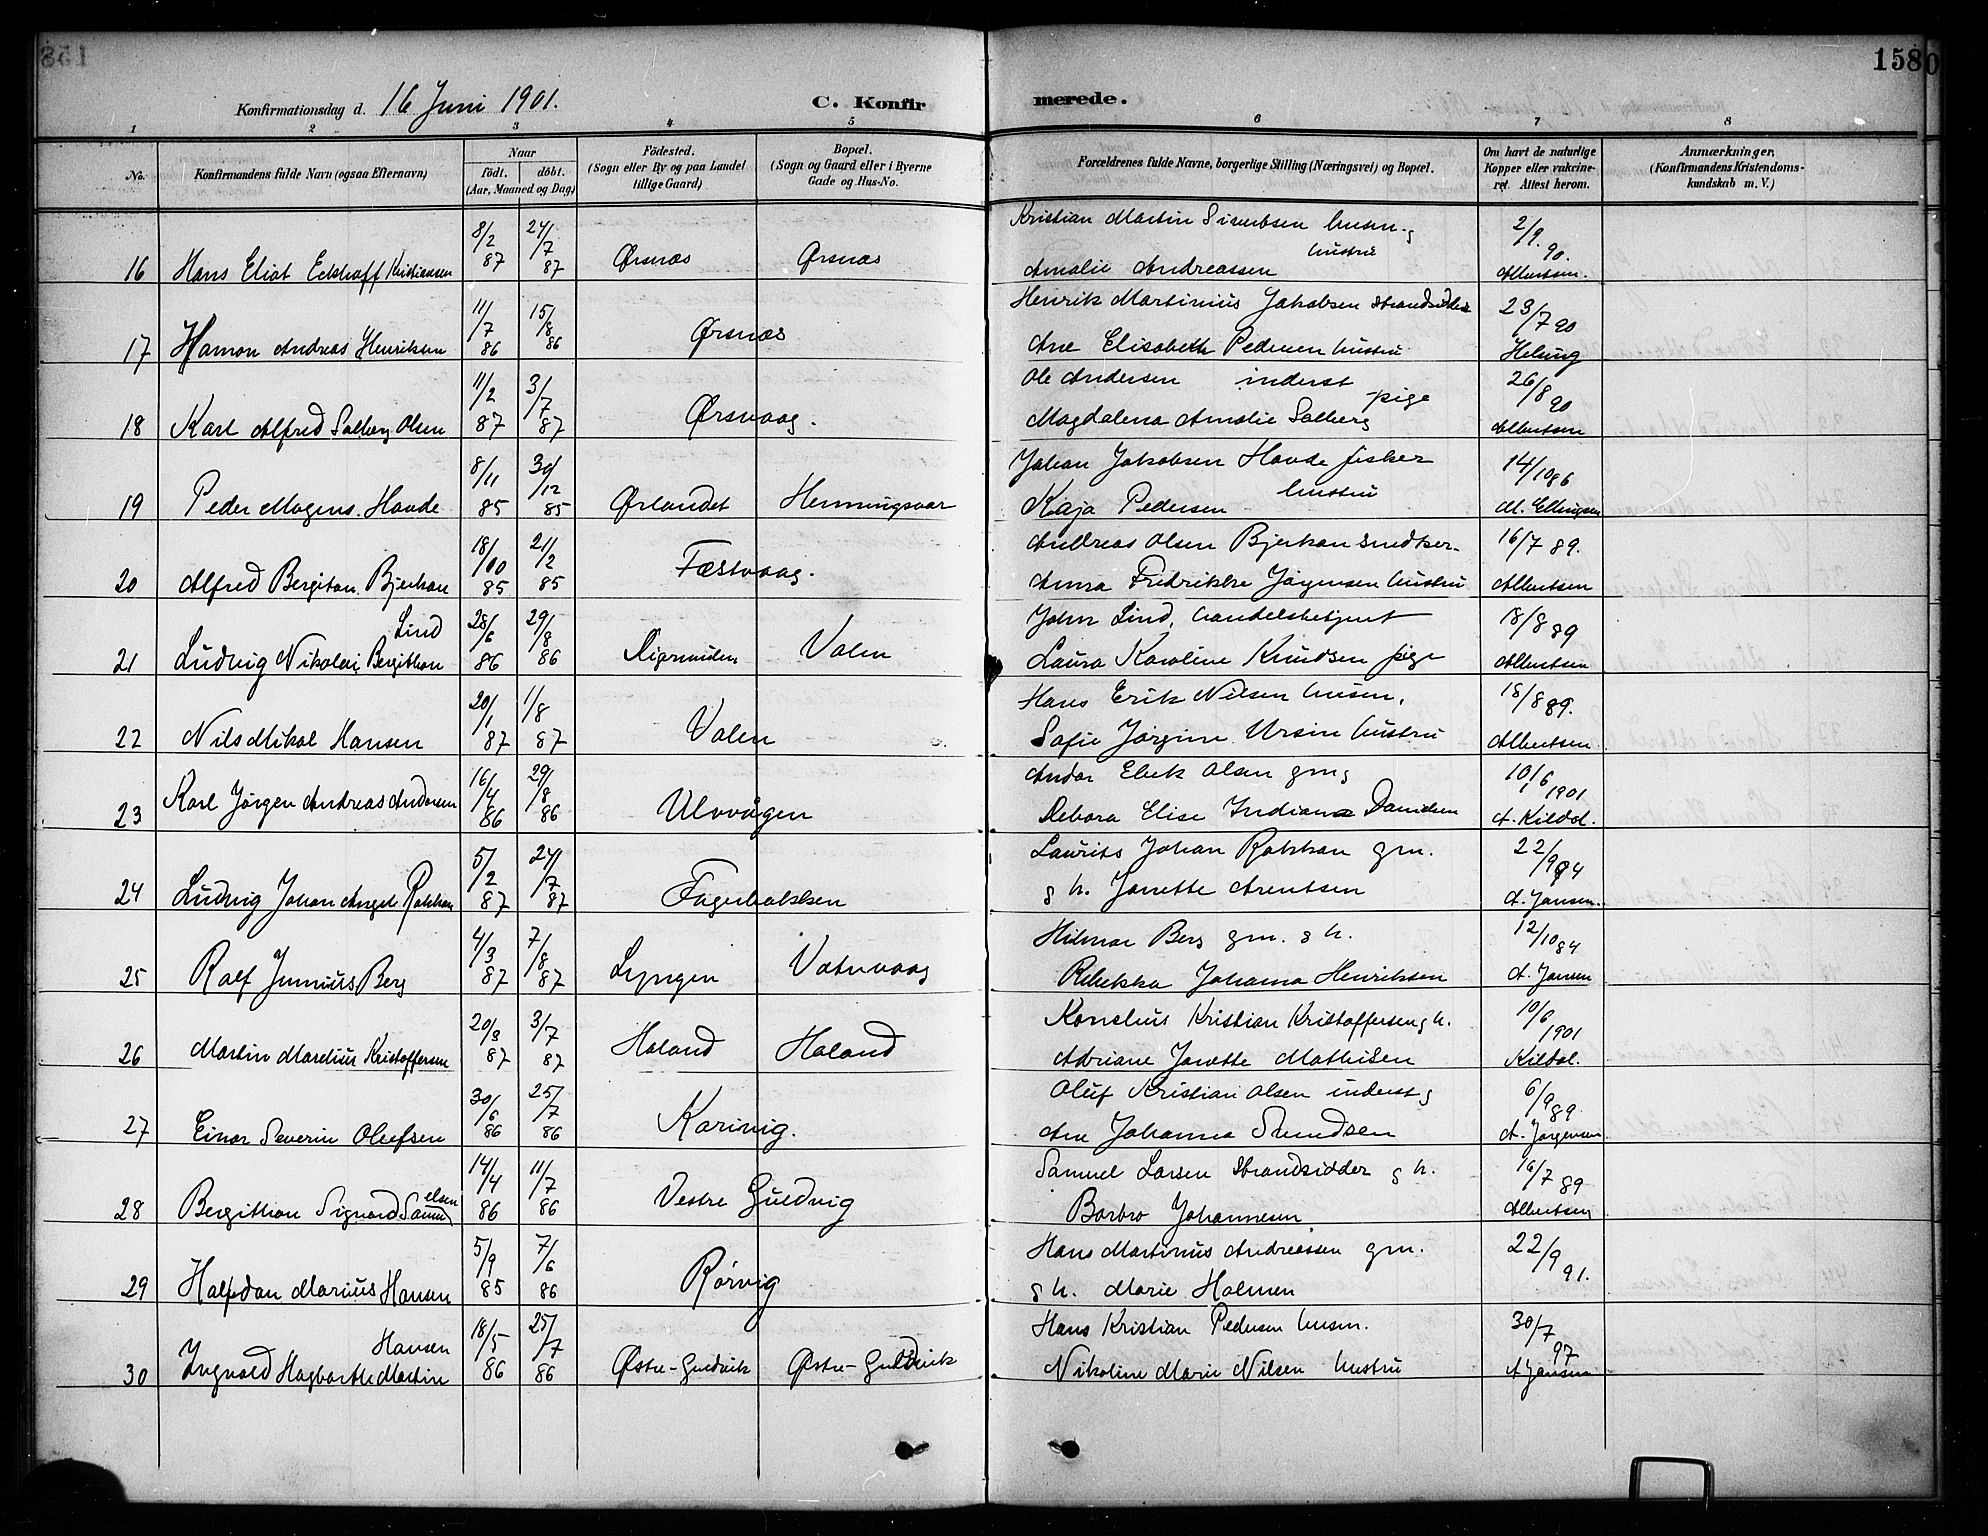 158
Konfirmationsdag d. 16 Juni 1901. C. Konfirmerede.
1 2 3 4 5 6 7 8
No. Konfirmandens fulde Navn (ogsaa Efternavn) Naar födt. döbt. (Aar, Maaned og Dag) Födested. (Sogn eller By og paa Landet tillige Gaard) Bopæl. (Sogn og Gaard eller i Byerne Gade og Hus-No. Forældrenes fulde Navne, borgerlige Stilling (Næringsvei) og Bopæl. Om havt de naturlige Kopper eller vakcineret. Attest herom. Anmærkninger, (Konfirmandens Kristendomskundskab m. V.)
16 Hans Eliot Kristiansen 8/2 87 24/7 87 Ørsnæs Ørsnæs Kristian Martin husm. g hustru 2/9. 90.
Amalie Andreassen Albertsen.
17 Hamon Andreas Henriksen 11/7 86 15/8 86 Ørsnæs Henrik Martinius Jakobsen strandsidder 23/7 90
Ane Elisabeth Pedersen hustru Helsing
18 Karl Alfred Salberg Olsen 11/2 87 3/7 87 Ørsvaag. Ole Andersen inderst 26/8 90
Magdalena Amalie Salberg pige Albertsen
19 Peder Mogens. Hovde 8/11 85 30/12 85 Ørlandet Henningsvær Johan Jakobsen Hovde fisker 14/10 86
Kaja Pedersen hustru M. Ellingsen
20 Alfred Bergitan. Bjerkan 18/10 85 21/2 85 Festvaag. Andreas Olsen Bjerkan snedker. 16/7 89.
Anna Fredrikke Jørgensen hustru Albertsen
21 Ludvig Nikolai Bergithon Lind 28/6 86 29/8 86 Digermulen Valen John Lind, handelsbetjent 18/8 89
Laura Karoline Knudsen pige Albertsen
22 Nils Mikal Hansen 20/1 87 1/8 87 Valen Hans Erik Nilsen husm. 18/8 89.
Sofie Jørgine Ursin hustru Albertsen.
23 Karl Jørgen Andreas Andorsen 16/4 86 29/8 86 Ulvvågen Andor Olsen gm g 10/6 1901
Debora Elise Indiana Danielsen A. Kildal.
24 Ludvig Johan Angel Rokkan 5/2 87 24/7 87 Fagerbakken Laurits Johan Rokkan gm. 22/9 94
g h. Janette Arentsen A. Jansen.
25 Ralf Junius Berg 4/3 87 7/8 87 Lyngen Votnvaag Hilmar Berg gm. g h. 12/10 84
Rebekka Johanna Henriksen A. Jansen
26 Martin Marelius Kristoffersen 20/3 87 3/7 87 Haland Haland Kornelius Kristian Kristoffersen g h. 10/6 1901
Adriane Janette Mathisen Kildal.
27 Einar Severin Olufsen 30/6 86 25/7 86 Karivig. Oluf Kristian Olsen inderst g 6/9 89
Ane Johanna A. Jørgensen.
28 Bergithon Sigvard Samuelsen 14/4 86 11/7 86 Vestre Guldvig Samuel Larsen strandsidder g h. 16/7 89
Barbro Johannesen Albertsen
29 Halfdan Marius Hansen 5/9 85 7/6 86 Rørvig Hans Martinus Andreassen gm. 22/9 91.
g h. Marie Holmen
30 Ingvald Hagbarth Martin Hansen 18/5 86 25/7 86 Østre-Guldvik Østre-Guldvik Hans Kristian Pedersen husm. 30/7 97
Nikoline Marie Nilsen hustru A Jansen